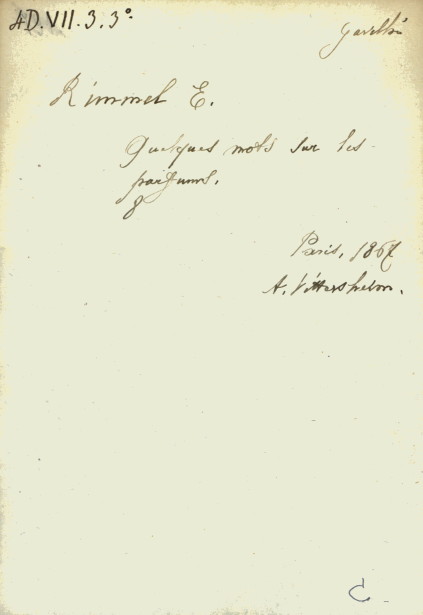 4D.VII.3.3°.
Rimmel E.
Quelques mots sur les
parfums.
8
Paris, 1867
A. Vittersheim.
C